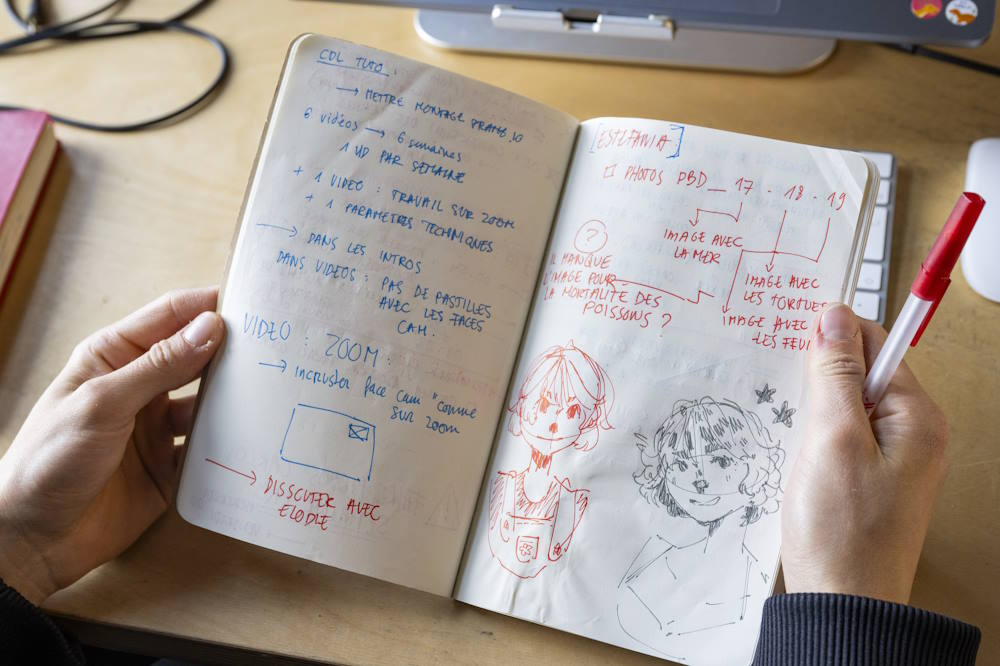 CDL TUTO :
→ METTRE MONTAGE FRAME.IO
6 vidéos → 6 semaines
1 VD PAR SEMAINE
+ 1 VIDEO : TRAVAIL SUR ZOOM
+ 1 PARAMETRES TECHNIQUES
→ DANS LES INTROS
DANS VIDEOS : PAS DE PASTILLES
AVEC LES FACES
CAM.
VIDEO : ZOOM :
→ incruster face cam "comme
SUR ZOOM
→ DISCUTER AVEC
ELODIE
[ESTEFANIA]
PHOTOS PBD_ 17 - 18 - 19
IMAGE AVEC
LA MER
IMAGE AVEC
LES TORTUES
IMAGE AVEC
LES FEUI
?
IL MANQUE
L'IMAGE POUR
LA MORTALITE DES
POISSONS ?